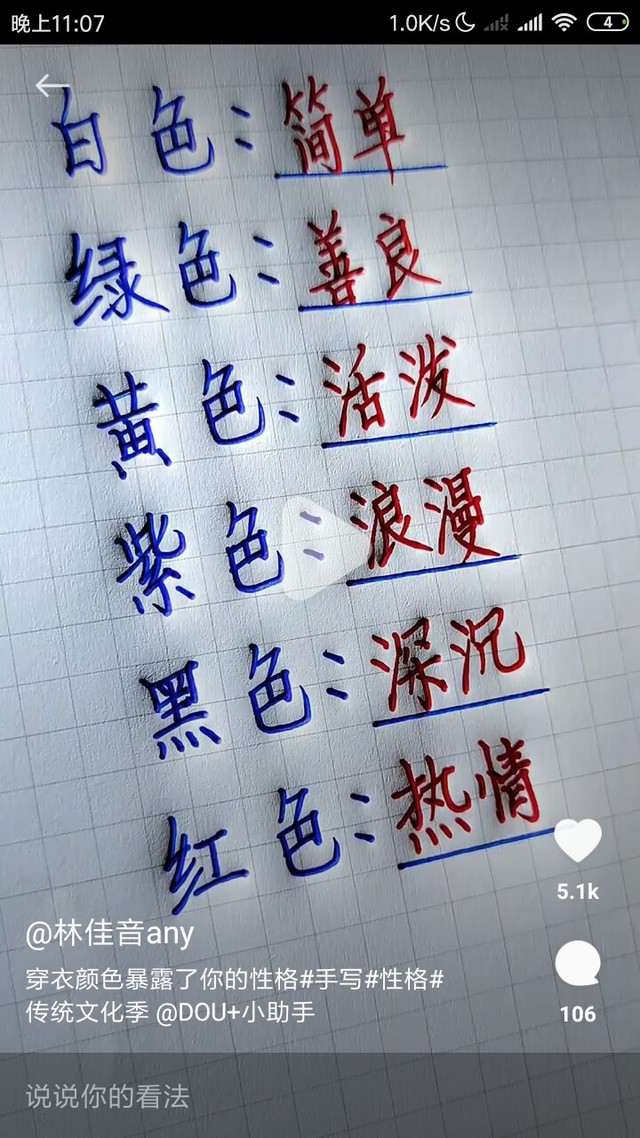 晚上11:07 1.0K/s 4
白色：简单
绿色：善良
黄色：活泼
紫色：浪漫
黑色：深沉
红色：热情
5.1k
@林佳音any
穿衣颜色暴露了你的性格#手写#性格#
传统文化季 @DOU+小助手
106
说说你的看法